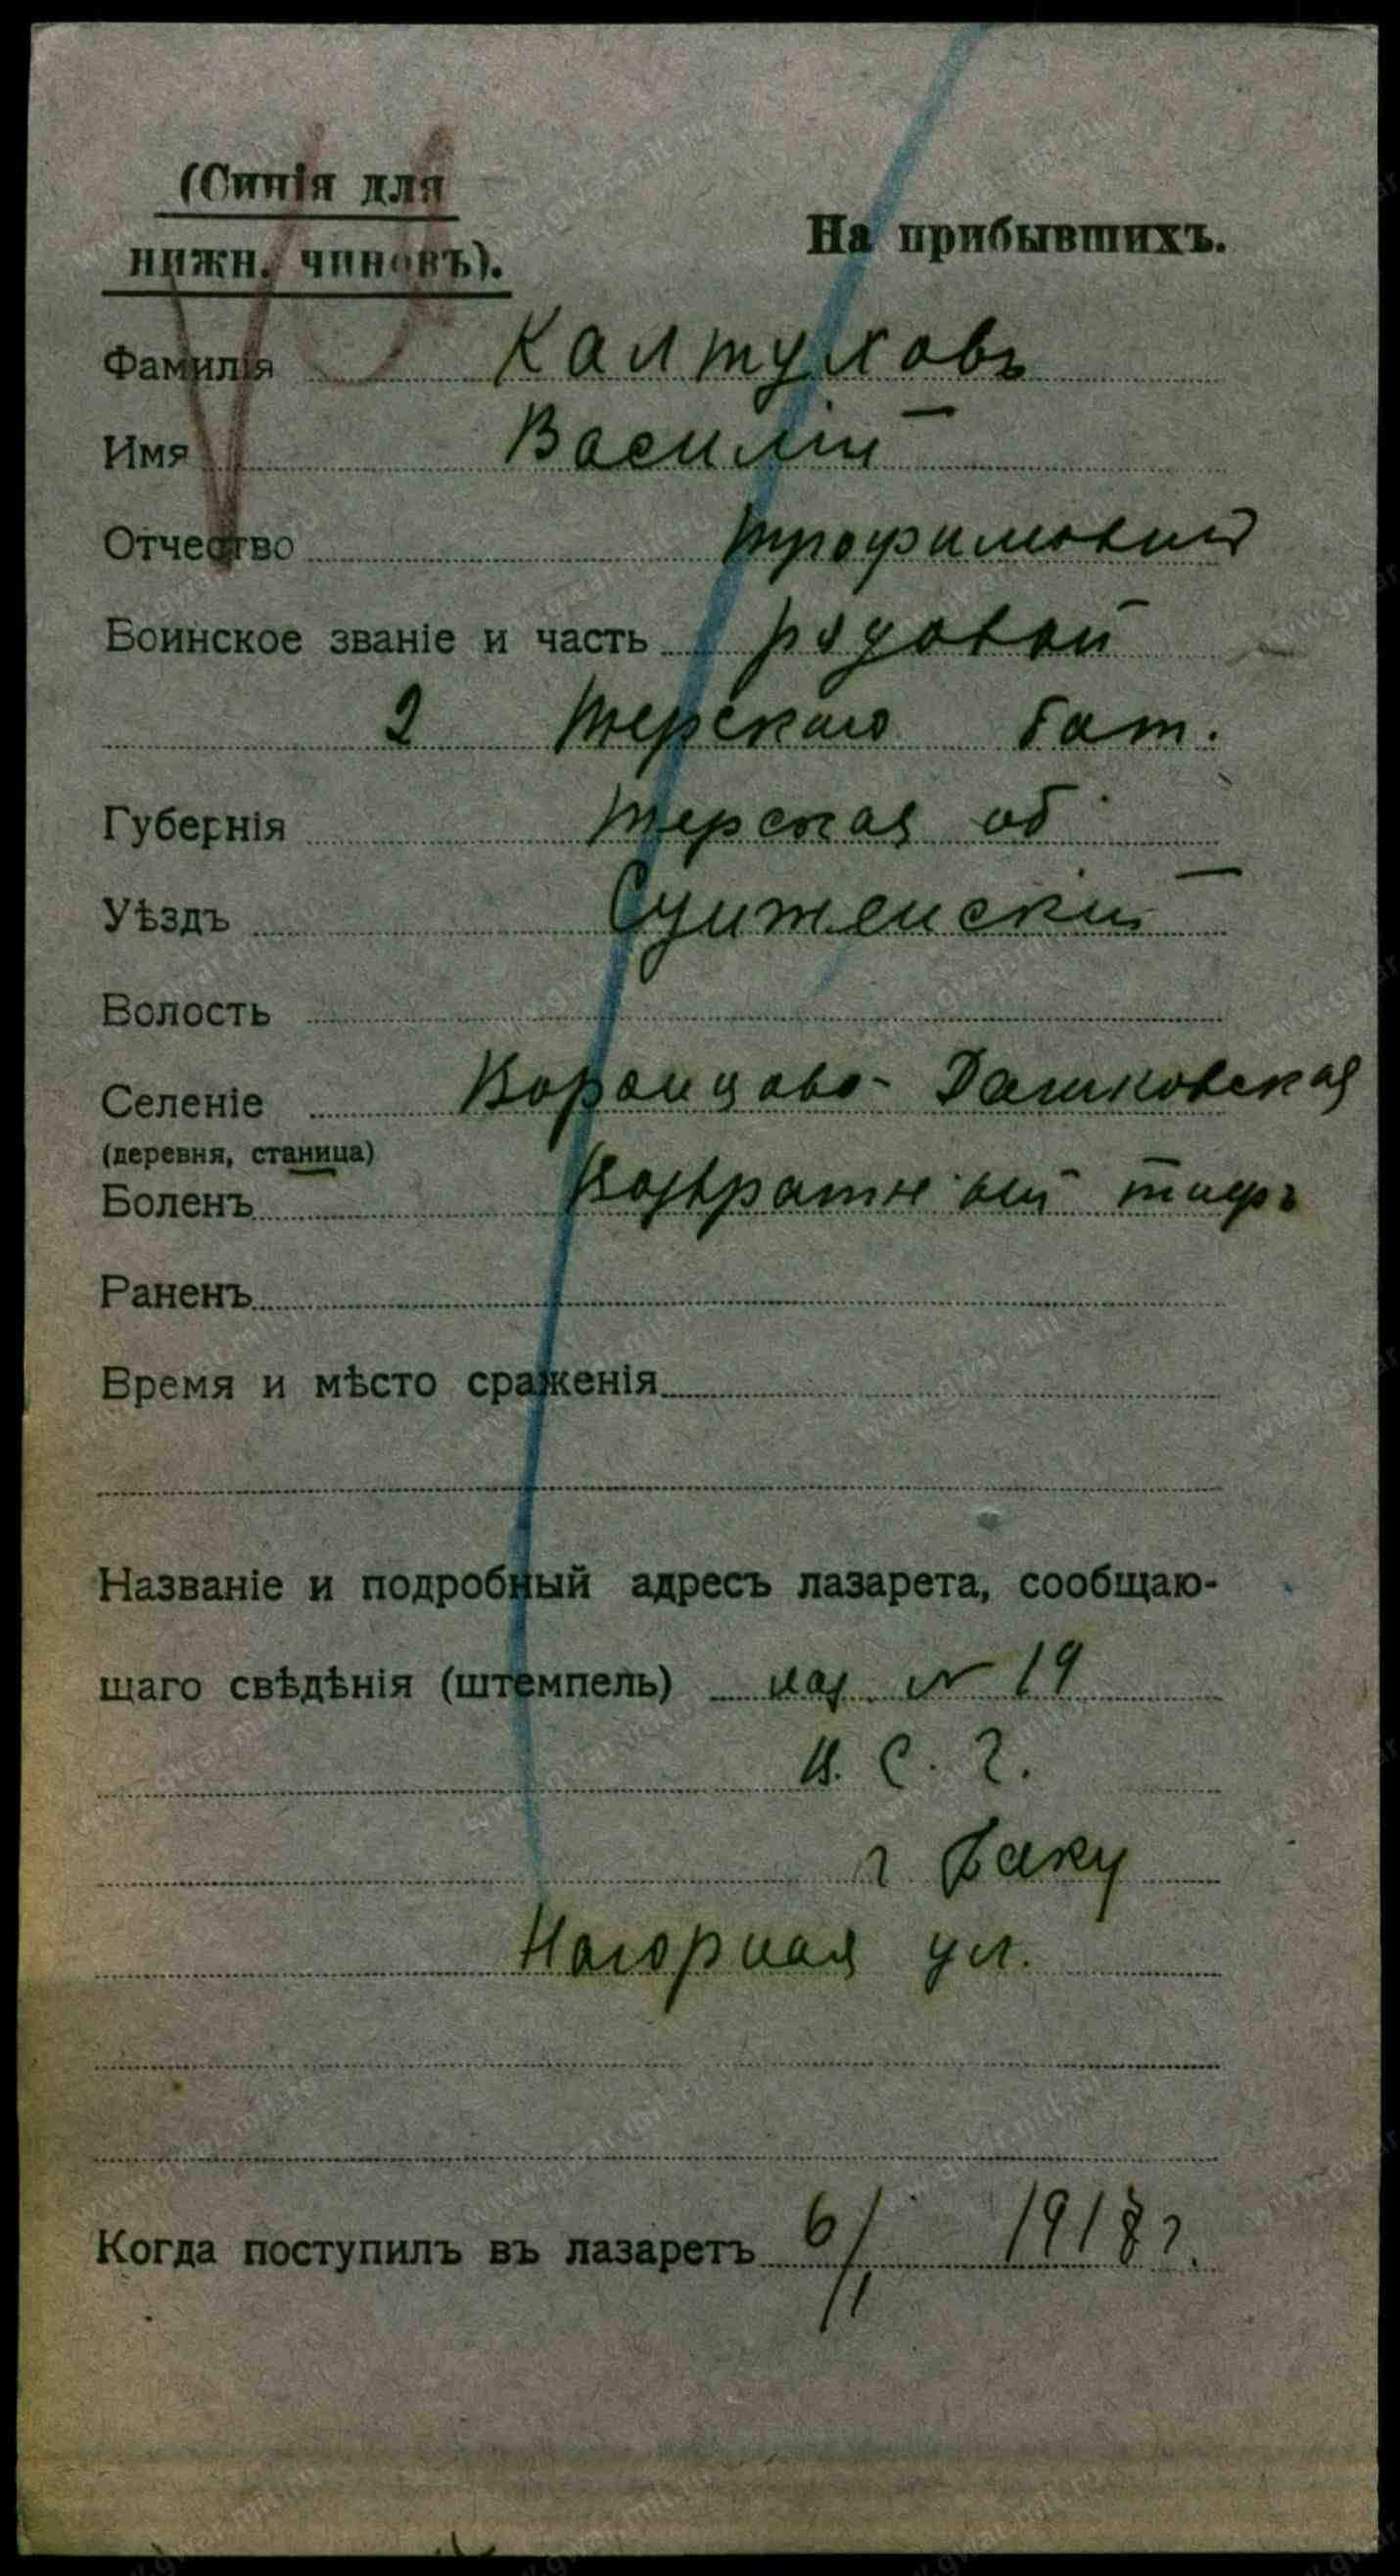 (Синія для
нижн. чиновъ).
На прибывшихъ.
Фамилія Калтуховъ
Имя Василій
Отчество Трофимовий
Воинское званіе и часть рядовой
2 Терскаго бат.
Губернія Терская об.
Уѣздъ Сунженскій
Волость
Селеніе Воронцово-Дашковская
(деревня, станица)
Боленъ Возвратный тифъ
Раненъ
Время и мѣсто сраженія
Названіе и подробный адресъ лазарета, сообщаю-
щаго свѣдѣнія (штемпель) лаз. № 19
В. С. Г.
г Баку
Нагорная ул.
Когда поступилъ въ лазаретъ 6/I 1918 г.